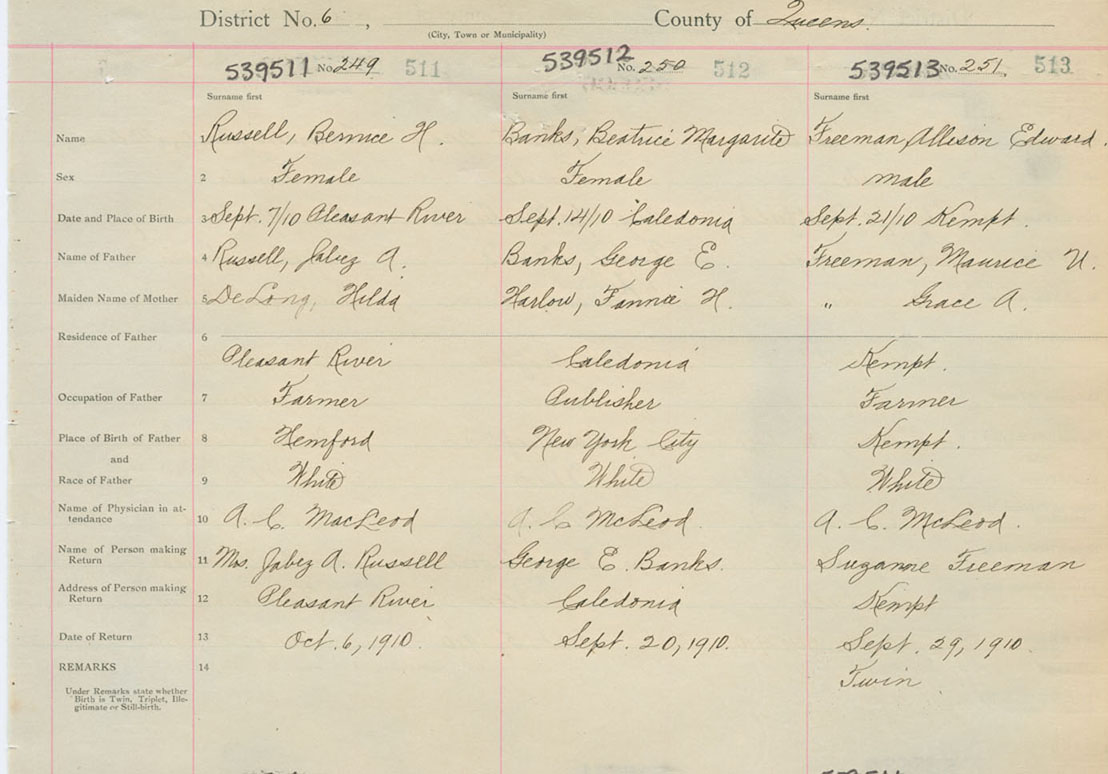 District No. 6 , County of Queens.
(City, Town or Municipality)
539511 No. 249 511 539512 No. 250 512 539513 No. 251. 513
Surname first Surname first Surname first
Name 1 Russell, Bernice H. Banks, Beatrice Margarite Freeman, Allison Edward.
Sex 2 Female Female male
Date and Place of Birth 3 Sept. 7/10 Pleasant River Sept. 14/10 Caledonia Sept. 21/10 Kempt.
Name of Father 4 Russell, Jabez A. Banks, George E. Freeman, Maurice U.
Maiden Name of Mother 5 DeLong, Hilda Harlow, Fannie H. " Grace A.
Residence of Father 6
Pleasant River Caledonia Kempt.
Occupation of Father 7 Farmer Publisher Farmer
Place of Birth of Father 8 Hemford New York City Kempt.
and
Race of Father 9 White White White
Name of Physician in at-
tendance 10 A. C. MacLeod A. C. McLeod. A. C. McLeod.
Name of Person making
Return 11 Mrs. Jabez A. Russell George E. Banks. Suzanne Freeman
Address of Person making
Return 12 Pleasant River Caledonia Kempt
Date of Return 13 Oct. 6, 1910. Sept. 20, 1910. Sept. 29, 1910.
REMARKS 14 Twin
Under Remarks state whether
Birth is Twin, Triplet, Ille-
gitimate or Still-birth.